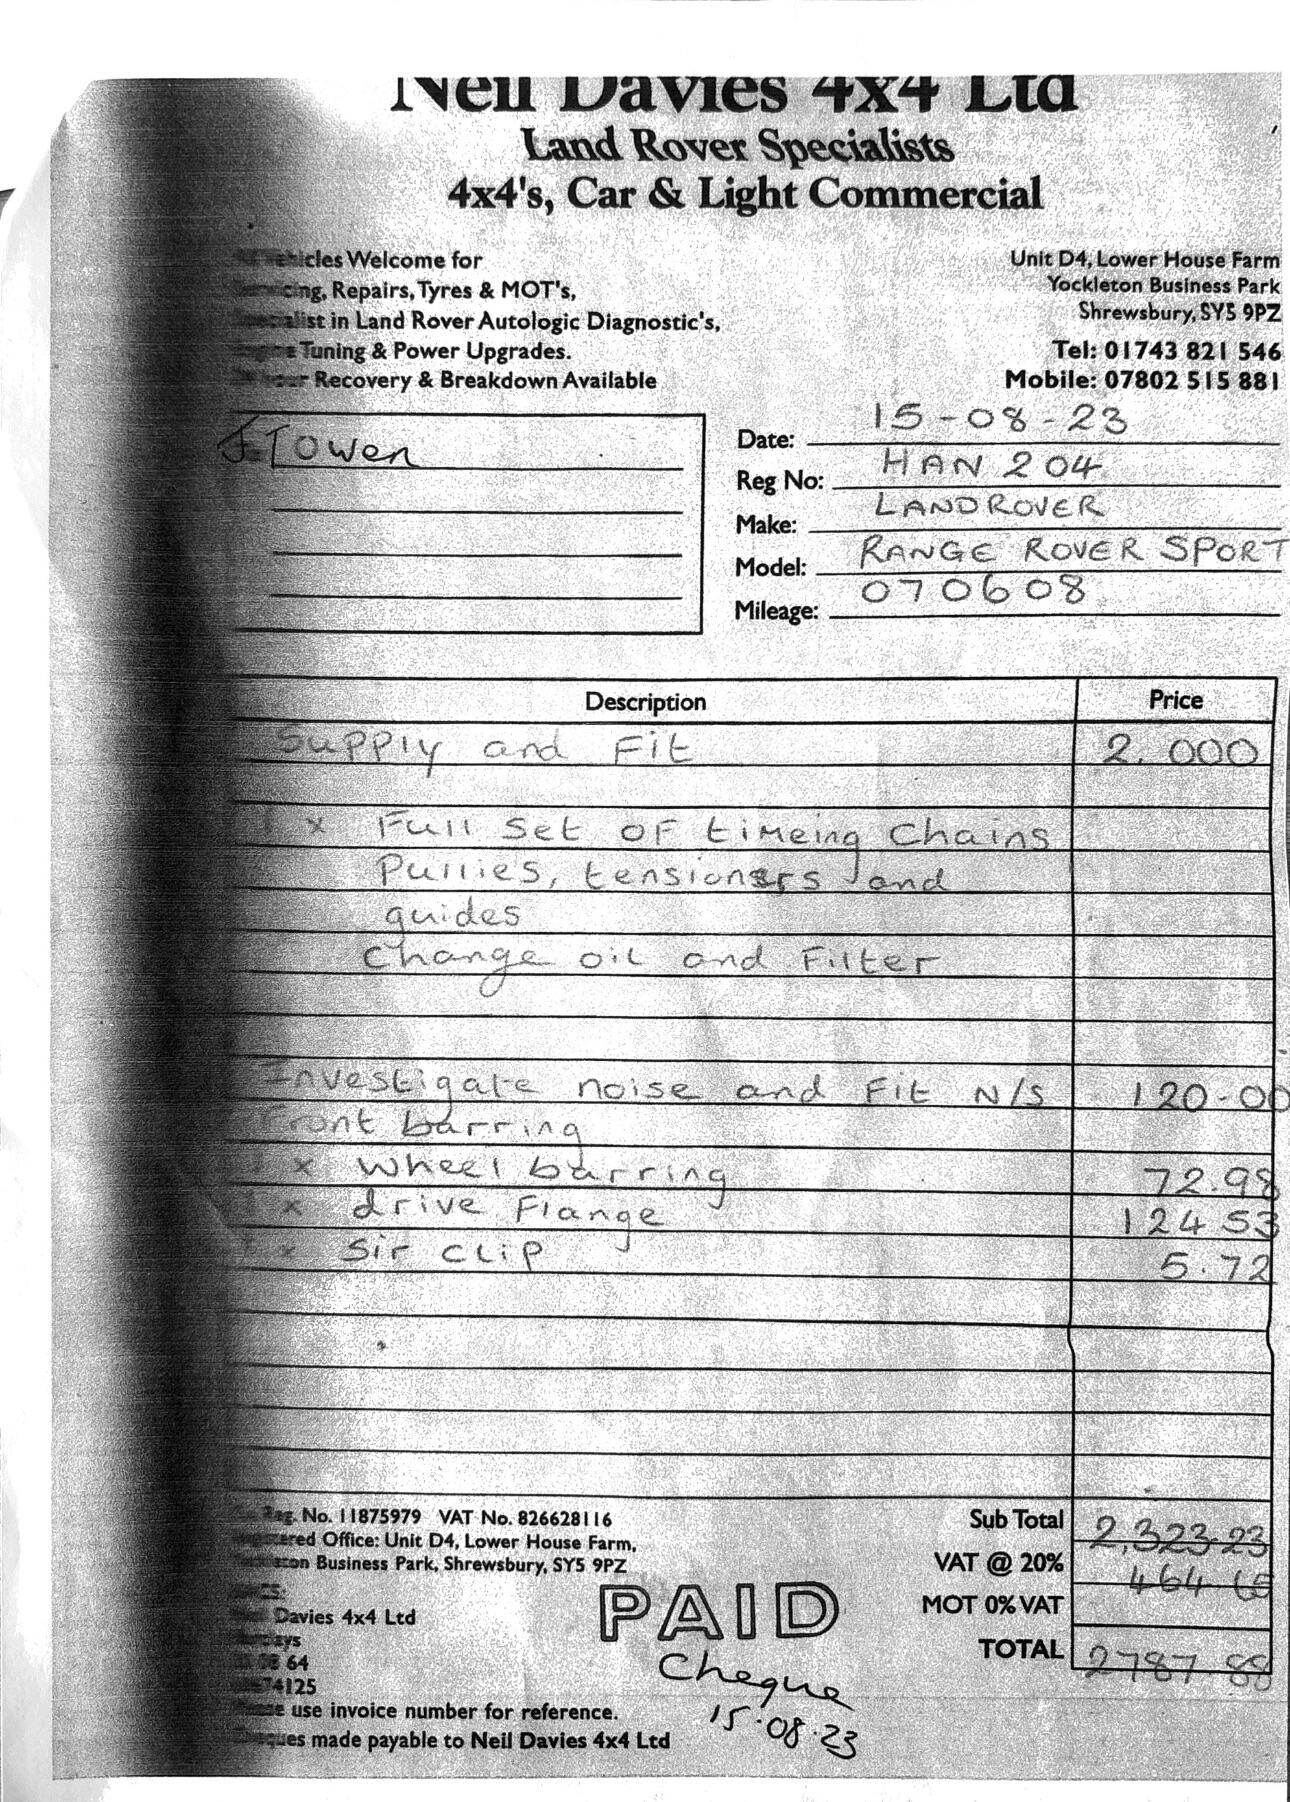 Neil Davies 4x4 Ltd
Land Rover Specialists
4x4's, Car & Light Commercial
Vehicles Welcome for
Servicing, Repairs, Tyres & MOT's,
Specialist in Land Rover Autologic Diagnostic's,
Engine Tuning & Power Upgrades.
Recovery & Breakdown Available
Unit D4, Lower House Farm
Yockleton Business Park
Shrewsbury, SY5 9PZ
Tel: 01743 821 546
Mobile: 07802 515 881
Towen
Date: 15-08-23
Reg No: HAN 204
Make: LANDROVER
Model: RANGE ROVER SPORT
Mileage: 070608
Description Price
Supply and Fit 2.000
1 x Full Set OF timeing Chains
Pullies, tensioners and
guides
Change oil and Filter
Investigate noise and Fit N/S 120-00
Front barring
1 x wheel barring 72.98
1 x drive Flange 124 53
1 x Sir CLIP 5.72
Reg. No. 11875979 VAT No. 826628116
Registered Office: Unit D4, Lower House Farm,
Yockleton Business Park, Shrewsbury, SY5 9PZ
Davies 4x4 Ltd
64
74125
Please use invoice number for reference.
Cheques made payable to Neil Davies 4x4 Ltd
PAID
Cheque
15.08.23
Sub Total 2,323 23
VAT @ 20% 464 65
MOT 0% VAT
TOTAL 2787 88